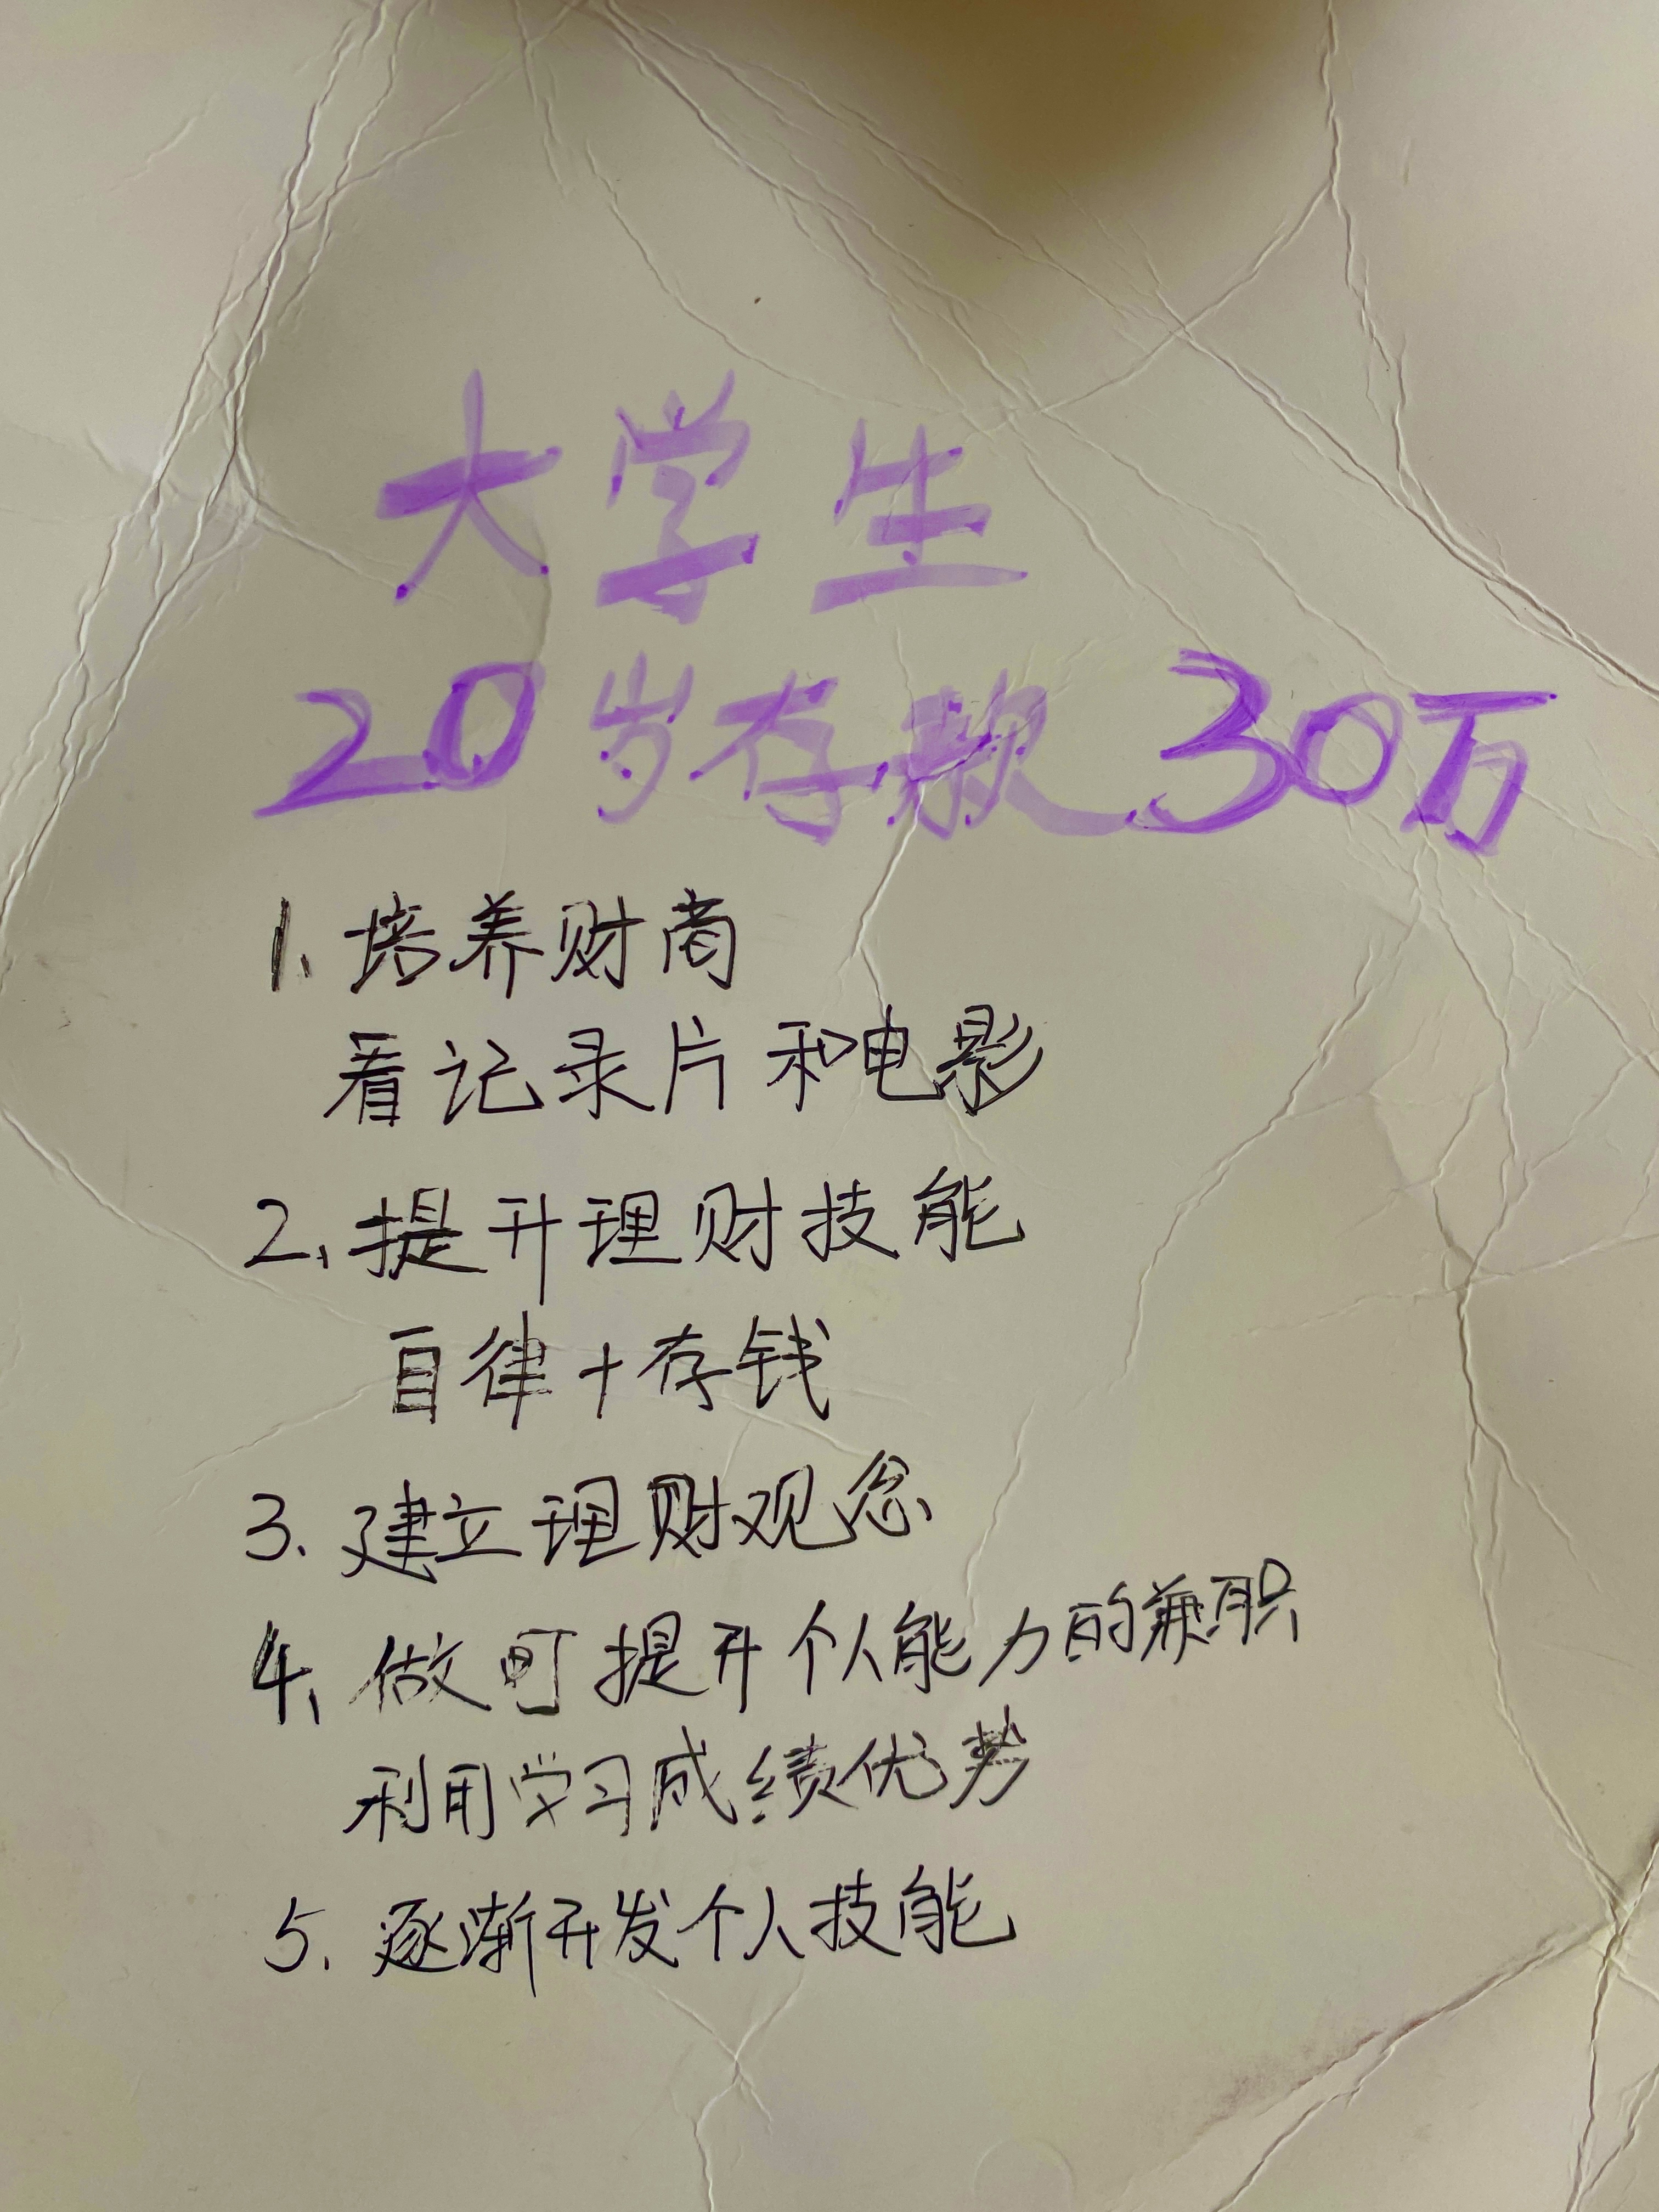 大学生
20岁存款30万
1、培养财商
看记录片和电影
2、提升理财技能
自律+存钱
3、建立理财观念
4、做可提升个人能力的兼职
利用学习成绩优势
5、逐渐开发个人技能